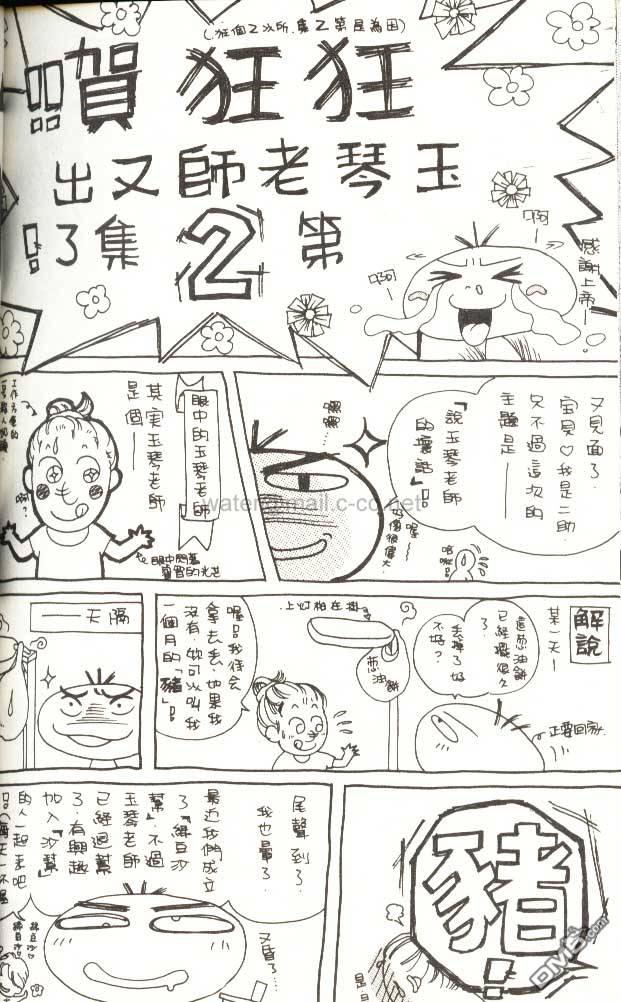 (因為是第2集.所以2個狂)
狂狂賀!!
玉琴老師又出
第2集了!!
感謝上帝—
啊—
啊—
又見面了.
寶貝♡我是二助.
只不過這次的
主題是——
「說玉琴老師
的壞話」!!
嘿嘿…
眼中的玉琴老師
其實玉琴老師
是個——
啊?
眼中閃著
智慧的光芒
water@mail.c-co.net
解說
某一天—
這蔥油餅
已經擺很久
了.
丟掉了好
不好?
正要回家.
掛在柏灯上
蔥油餅
喔!!我待會
拿去丟.如果我
沒有.妳可以叫我
一個月的「豬」!!
隔天——
豬!
是…
尾聲到了.
我也暈了.
最近我們成立
了「綠豆沙
幫」.不過
玉琴老師
已經過幫
了.有興趣
加入「沙幫」
的人一起來吧
又昏了…
綠豆沙